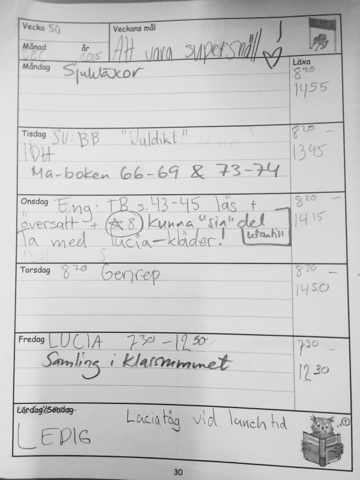 Vecka 50
Veckans mål
Månad år 2015
Att vara supersnäll!
Måndag Sjukläxor
Läxa
8 20
14 55
Tisdag SV: BB "Juldikt"
IDH
Ma-boken 66-69 & 73-74
8 20 -
13 45
Onsdag Eng: TB s. 43-45 läs +
översatt + A8) kunna "sin" del
utantill
Ta med lucia-kläder!
8 20 -
14 15
Torsdag 8 20 Genrep
8 20 -
14 50
Fredag LUCIA 7 30 - 12 30
Samling i klassrummet
7 30 -
12 30
Lördag/Söndag
Luciatåg vid lunchtid
LEDIG
30